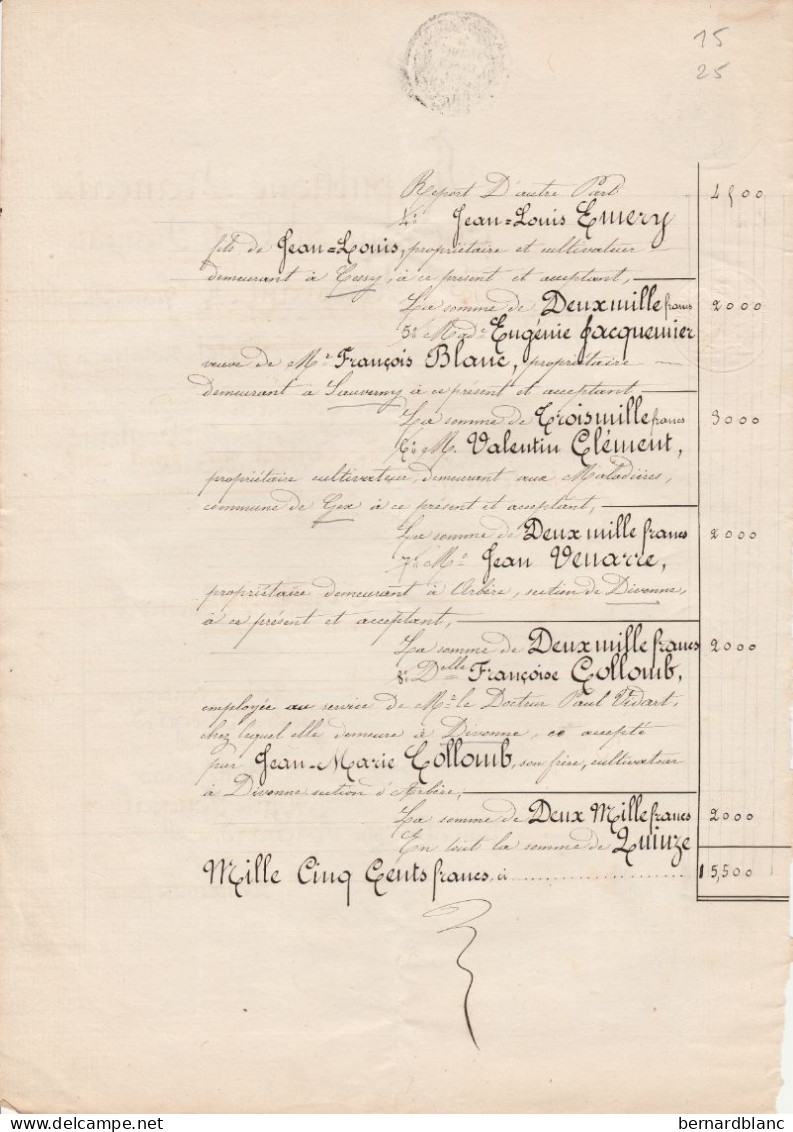 15
25
Report D'autre Part 4500
4º Jean=Louis Emery
fils de Jean=Louis, propriétaire et cultivateur
demeurant à Cessy, à ce présent et acceptant,
La somme de Deux mille francs 2000
5º Made Eugénie Jacquemier
veuve de Mr François Blanc, propriétaire
demeurant à Sauverny à ce présent et acceptant
La somme de Trois mille francs 3000
6º M. Valentin Clément,
propriétaire cultivateur, demeurant aux Maladières,
commune de Gex à ce présent et acceptant,
La somme de Deux mille francs 2000
7º Mr Jean Venarre,
propriétaire demeurant à Arbère, section de Divonne,
à ce présent et acceptant,
La somme de Deux mille francs 2000
8º Delle Françoise Collomb,
employée au service de Mr le Docteur Paul Vidart,
chez lequel elle demeure à Divonne, ce accepté
par Jean-Marie Collomb, son frère, cultivateur
à Divonne section d'Arbère,
La somme de Deux Mille francs 2000
En tout la somme de Quinze
Mille Cinq Cents francs, ci 15,500
bernardblanc